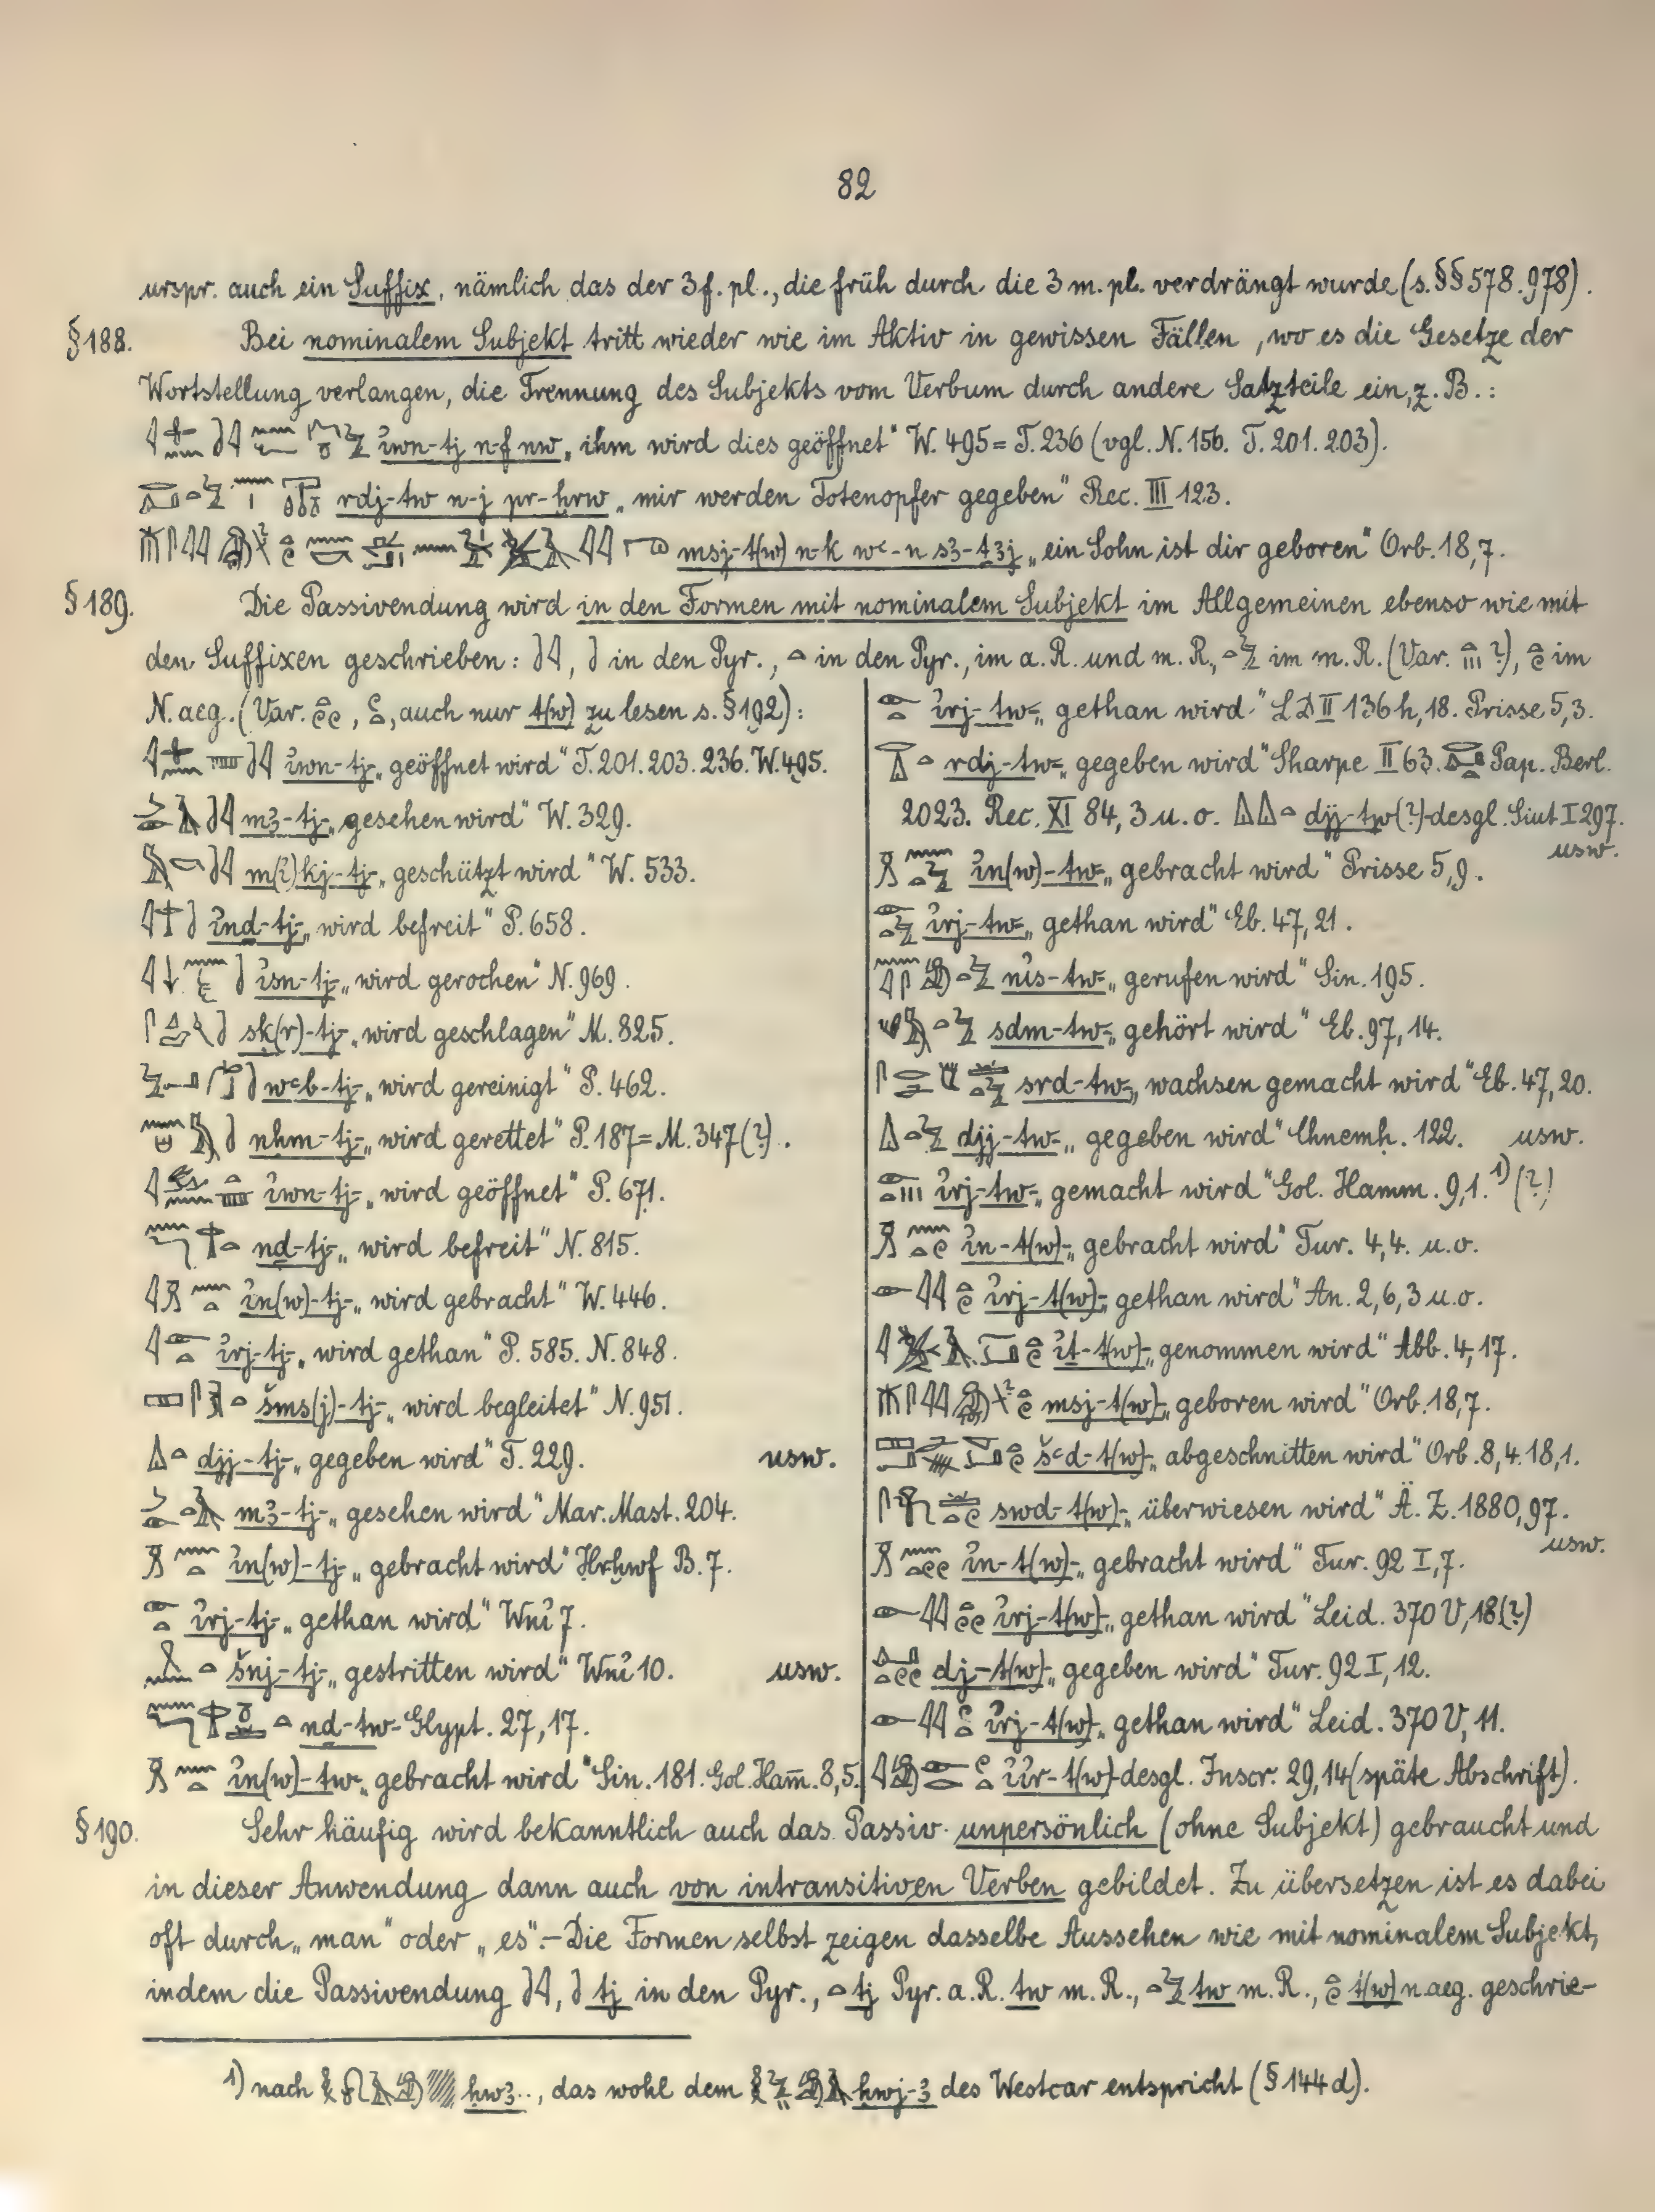 82
urspr. auch ein Suffix, nämlich das der 3 f. pl., die früh durch die 3 m. pl. verdrängt wurde (s. §§ 578. 978).
§ 188. Bei nominalem Subjekt tritt wieder wie im Aktiv in gewissen Fällen, wo es die Gesetze der
Wortstellung verlangen, die Trennung des Subjekts vom Verbum durch andere Satzteile ein, z. B.:
i̓wn-tj n-f nw „ihm wird dies geöffnet“ W. 495 = T. 236 (vgl. N. 156. T. 201. 203).
rdj-tw n-j pr-ḫrw „mir werden Totenopfer gegeben“ Rec. III 123.
msj-t(w) n-k wꜥ-n s3-ṯ3j „ein Sohn ist dir geboren“ Orb. 18,7.
§ 189. Die Passivendung wird in den Formen mit nominalem Subjekt im Allgemeinen ebenso wie mit
den Suffixen geschrieben: in den Pyr., in den Pyr., im a. R. und m. R., im m. R. (Var. ?), im
N. aeg. (Var. auch nur t(w) zu lesen s. § 192):
i̓wn-tj- „geöffnet wird“ T. 201. 203. 236. W. 495.
m3-tj- „gesehen wird“ W. 329.
m(i̓)kj-tj- „geschützt wird“ W. 533.
i̓nḏ-tj- „wird befreit“ P. 658.
i̓sn-tj- „wird gerochen“ N. 969.
sḳ(r)-tj- „wird geschlagen“ M. 825.
wꜥb-tj- „wird gereinigt“ P. 462.
nḥm-tj- „wird gerettet“ P. 187 = M. 347 (?).
i̓wn-tj- „wird geöffnet“ P. 671.
nḏ-tj- „wird befreit“ N. 815.
i̓n(w)-tj- „wird gebracht“ W. 446.
i̓rj-tj- „wird gethan“ P. 585. N. 848.
šms(j)-tj- „wird begleitet“ N. 951.
djj-tj- „gegeben wird“ T. 229. usw.
m3-tj- „gesehen wird“ Mar. Mast. 204.
i̓n(w)-tj- „gebracht wird“ Ḥrḫwf B. 7.
i̓rj-tj- „gethan wird“ Wni̓ 7.
šnj-tj- „gestritten wird“ Wni̓ 10. usw.
nḏ-tw- Glypt. 27,17.
i̓n(w)-tw- „gebracht wird“ Sin. 181. Gol. Ham̅. 8,5.
i̓rj-tw- „gethan wird“ LD II 136 h, 18. Prisse 5,3.
rdj-tw- „gegeben wird“ Sharpe II 63. Pap. Berl.
2023. Rec. XI 84, 3 u. o. djj-tw(?)- desgl. Siut I 297.
usw.
i̓n(w)-tw- „gebracht wird“ Prisse 5,9.
i̓rj-tw- „gethan wird“ Eb. 47,21.
ni̓s-tw- „gerufen wird“ Sin. 195.
sḏm-tw- „gehört wird“ Eb. 97,14.
srd-tw- „wachsen gemacht wird“ Eb. 47,20.
djj-tw- „gegeben wird“ Chnemḥ. 122. usw.
i̓rj-tw- „gemacht wird“ Gol. Hamm. 9,1.¹) (?)
i̓n-t(w)- „gebracht wird“ Tur. 4,4. u. o.
i̓rj-t(w)- „gethan wird“ An. 2,6,3 u. o.
i̓ṯ-t(w)- „genommen wird“ Abb. 4,17.
msj-t(w)- „geboren wird“ Orb. 18,7.
šꜥd-t(w)- „abgeschnitten wird“ Orb. 8,4. 18,1.
swḏ-t(w)- „überwiesen wird“ Ä. Z. 1880,97.
usw.
i̓n-t(w)- „gebracht wird“ Tur. 92 I,7.
i̓rj-t(w)- „gethan wird“ Leid. 370 V, 18 (?)
dj-t(w)- „gegeben wird“ Tur. 92 I, 12.
i̓rj-t(w)- „gethan wird“ Leid. 370 V, 11.
i̓i̓r-t(w)- desgl. Inscr. 29,14 (späte Abschrift).
§ 190. Sehr häufig wird bekanntlich auch das Passiv unpersönlich (ohne Subjekt) gebraucht und
in dieser Anwendung dann auch von intransitiven Verben gebildet. Zu übersetzen ist es dabei
oft durch „man“ oder „es“. – Die Formen selbst zeigen dasselbe Aussehen wie mit nominalem Subjekt,
indem die Passivendung tj in den Pyr., tj Pyr. a. R. tw m. R., tw m. R., t(w) n. aeg. geschrie-
¹) nach ḥw3.., das wohl dem ḥwj-3 des Westcar entspricht (§ 144 d).